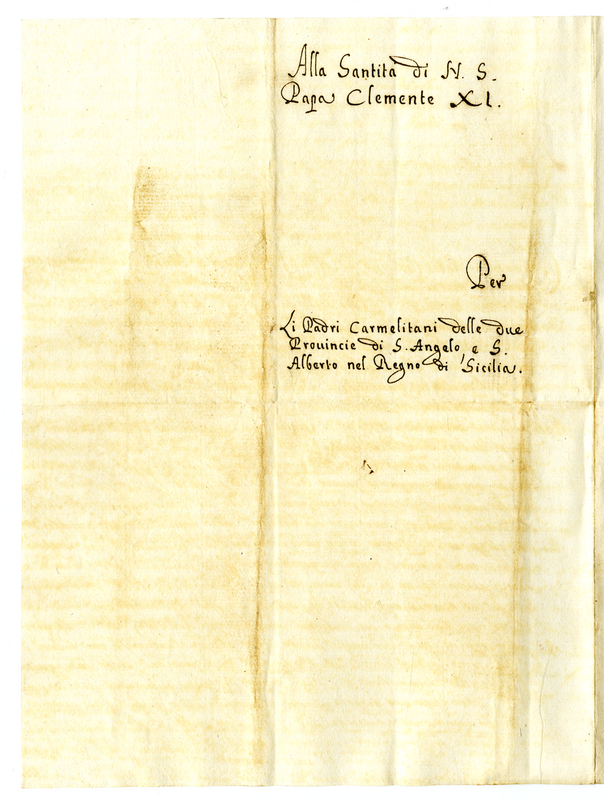 Alla Santità di N. S.
Papa Clemente XI.
Per
Li Padri Carmelitani delle due
Prouincie di S. Angelo, e S.
Alberto nel Regno di Sicilia.